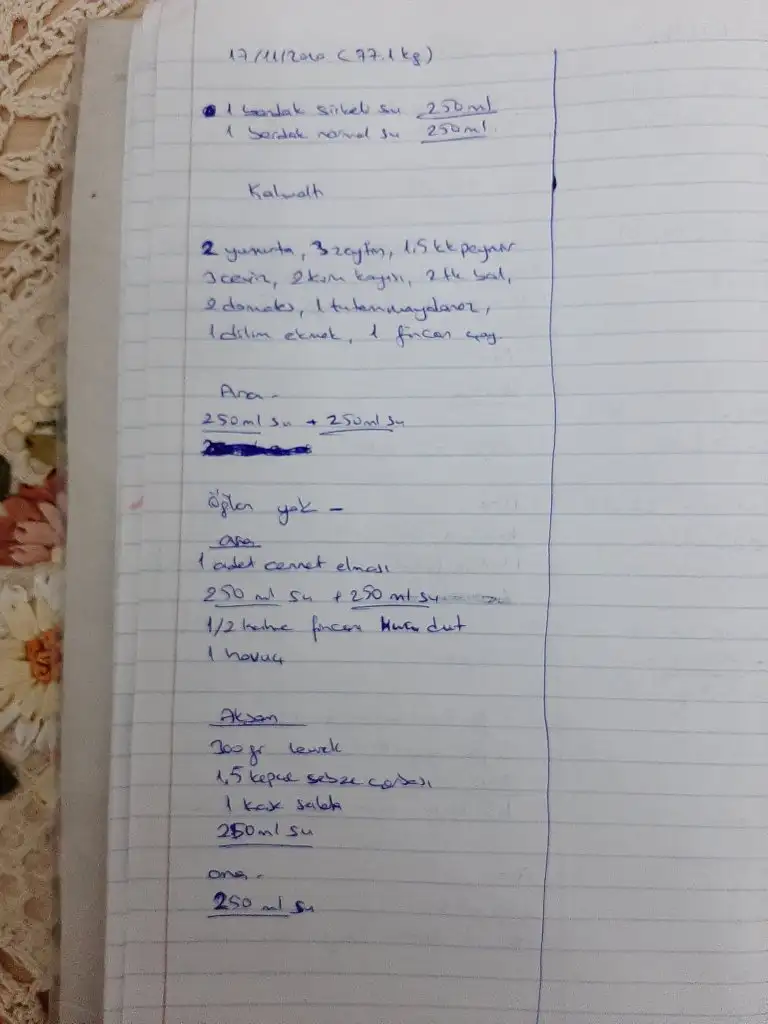 17/11/2020 (77.1 kg)
1 bardak sirkeli su 250 ml
1 bardak normal su 250 ml
Kahvaltı
2 yumurta, 3 zeytin, 1,5 kk peynir
3 ceviz, 2 kuru kayısı, 2 tk bal,
2 domates, 1 tutam maydanoz,
1 dilim ekmek, 1 fincan çay
Ara -
250 ml su + 250 ml su
Öğlen yok -
ara
1 adet cennet elması
250 ml su + 250 ml su
1/2 kahve fincanı kuru dut
1 havuç
Akşam
300 gr levrek
1,5 kepçe sebze çorbası
1 kase salata
250 ml su
ara -
250 ml su